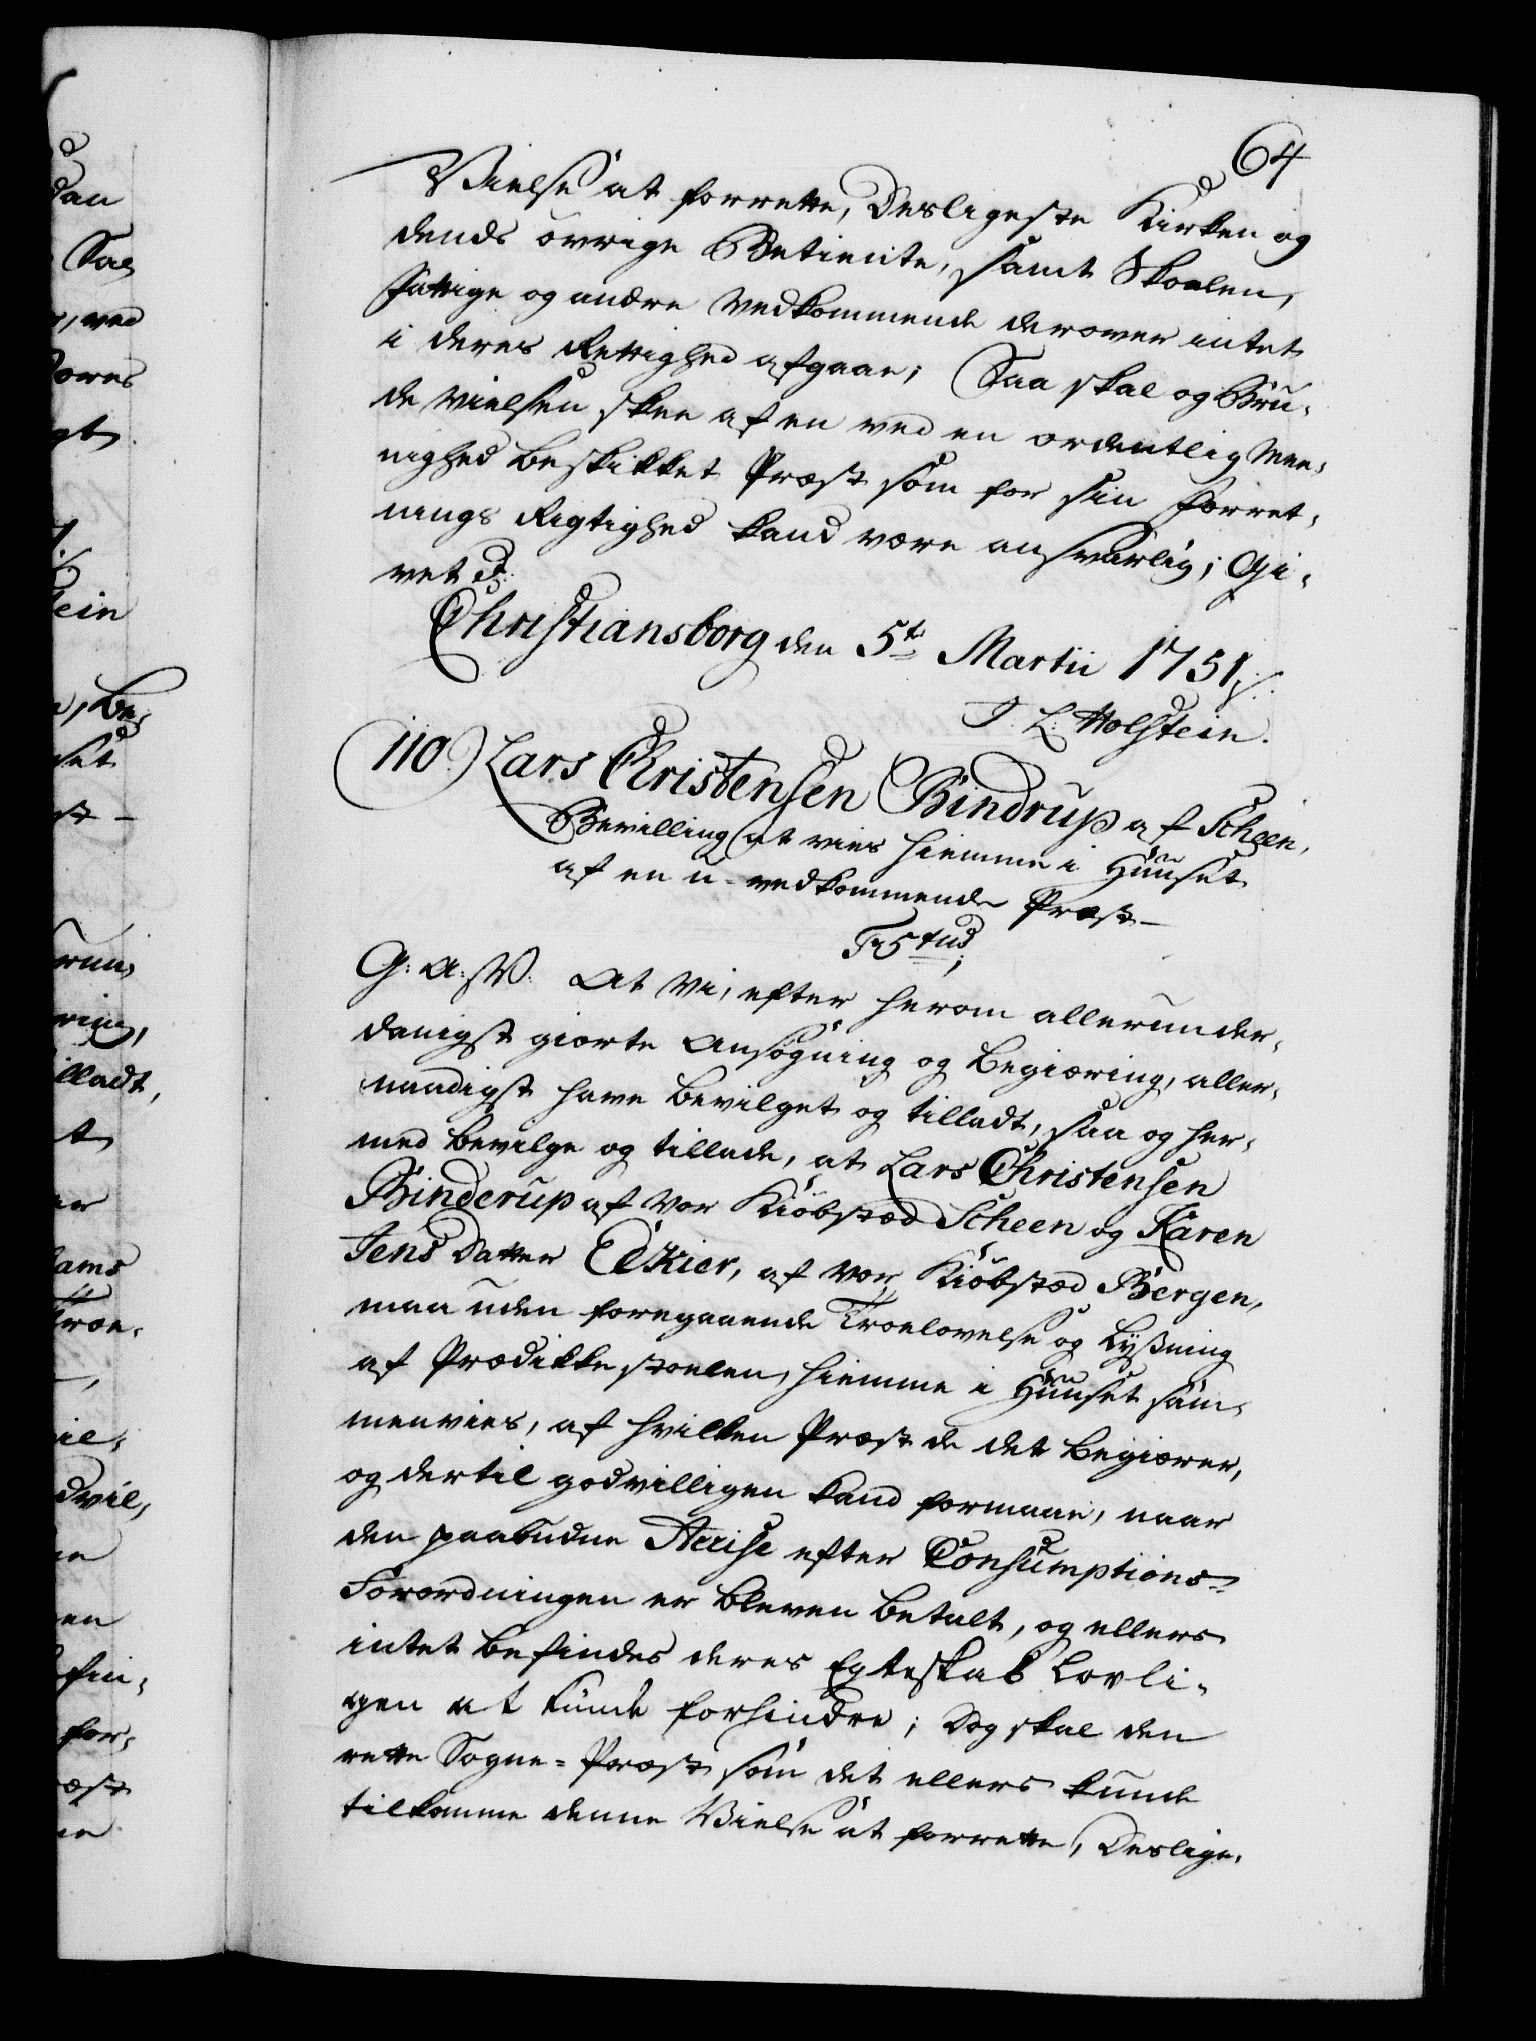 64
Vielse at forrette, Desligeste Kirken og
dends övrige Betiente, samt Skoelen,
Fattige og andre Vedkommende derover intet
i deres Rettighed afgaae; Saa skal og Bru-
de Vielsen skee af en ved en ordentlig Mee-
nighed beskikket Præst som for sin Forret-
nings Rigtighed kand være ansvarlig; Gi-
vet &:
Christiansborg den 5te Martii 1751.
J. L. Holstein.
110.) Lars Christensen Bindrup af Scheen,
Bevilling at vies hiemme i Huuset
af en u-vedkommende Præst—
G: A: V: At Vi, efter herom allerunder-
danigst giorte Ansögning og Begiæring, aller-
naadigst have bevilget og tilladt, saa og her-
med bevilge og tillade, at Lars Christensen
Binderup af Vor Kiöbstæd Scheen og Karen
Jens Datter af Vor Kiöbstæd Bergen,
maa uden foregaaende Troelovelse og Lysning
af Prædikkestoelen, hiemme i Huuset sam-
menvies, af hvilken Præst de det begiærer,
og dertil godvilligen kand formaae, naar
den paabudne Accise efter Consumptions-
Forordningen er bleven betalt, og ellers
intet befindes deres Egteskab Lovli-
gen at kunde forhindre; Dog skal den
rette Sogne-Præst som det ellers kunde
tilkomme denne Vielse at forrette, Deslige-